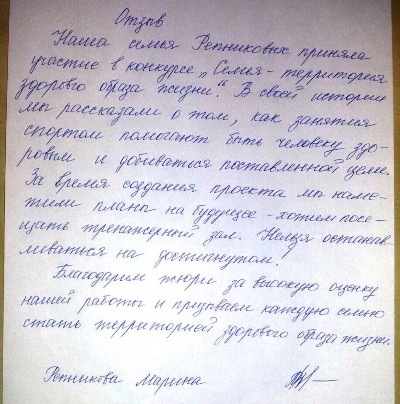 Отзыв
Наша семья Репниковых приняла
участие в конкурсе „Семья - территория
здорового образа жизни". В своей истории
мы рассказали о том, как занятия
спортом помогают быть человеку здо-
ровым и добиваться поставленной цели.
За время создания проекта мы наме-
тили планы на будущее - хотим посе-
щать тренажерный зал. Нельзя останав-
ливаться на достигнутом!
Благодарим жюри за высокую оценку
нашей работы и призываем каждую семью
стать территорией здорового образа жизни.
Репникова Марина